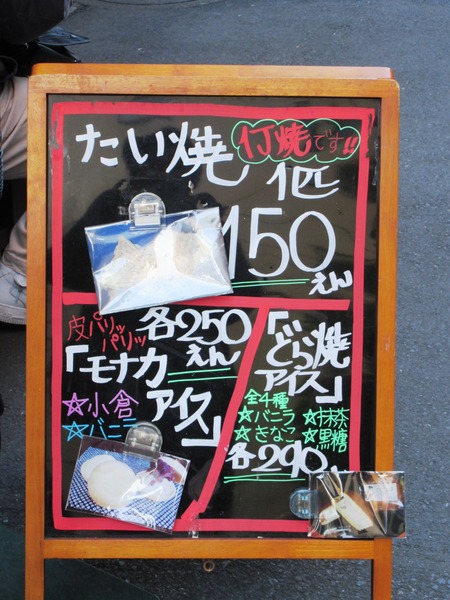 たい焼
1丁焼です!!
1匹
150
えん
皮パリッ
パリッ
各250
えん
「モナカ
アイス」
☆小倉
☆バニラ
「どら焼
アイス」
全4種
☆バニラ ☆抹茶
☆きなこ ☆黒糖
各290えん